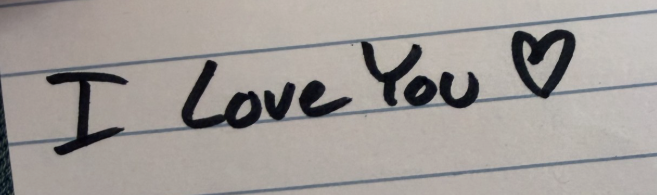 I Love You ♡